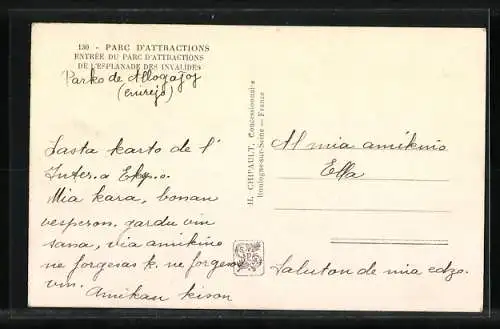 130 - PARC D'ATTRACTIONS
ENTRÉE DU PARC D'ATTRACTIONS
DE L'ESPLANADE DES INVALIDES
Parko de Allogaĵoj
(enirejo)
Lasta karto de l'
Inter.a Eksp.o.
Mia kara, bonan
vesperon. gardu vin
sana, via amikino
ne forgesas k. ne forgesos
vin. Amikan kison
H. CHIPAULT, Concessionnaire
Boulogne-sur-Seine — France
Al mia amikino
Ella
Saluton de mia edzo.